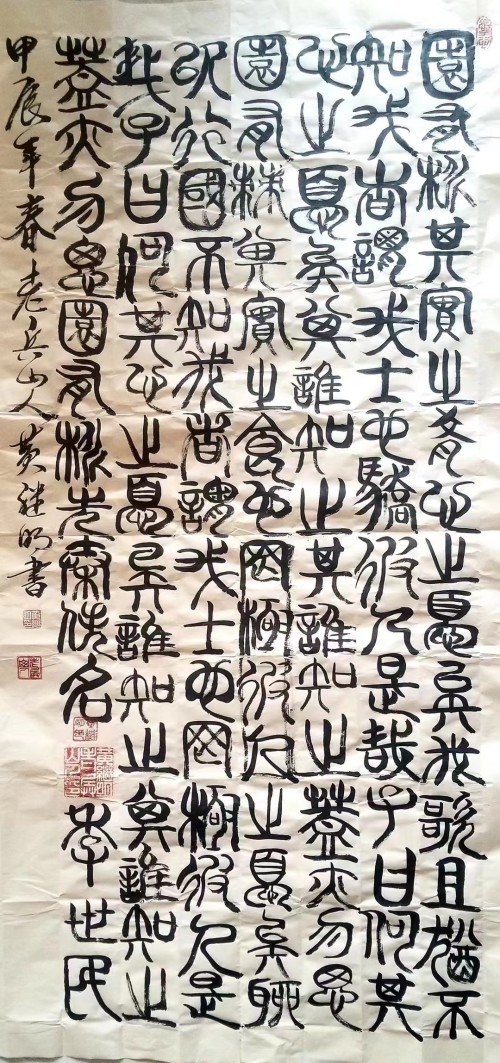 園有桃其實之肴心之憂矣我歌且猶不
知我者謂我士也驕彼人是哉子曰何其
心之憂矣其誰知之其誰知之蓋亦勿思
園有棘其實之食也罔極彼人之憂矣聊
以行國不知我者謂我士也罔極彼人是
哉子曰何其心之憂矣誰知之其誰知之
蓋亦勿思園有桃先秦佚名 李世民
甲辰年春老兵山人黃继明書